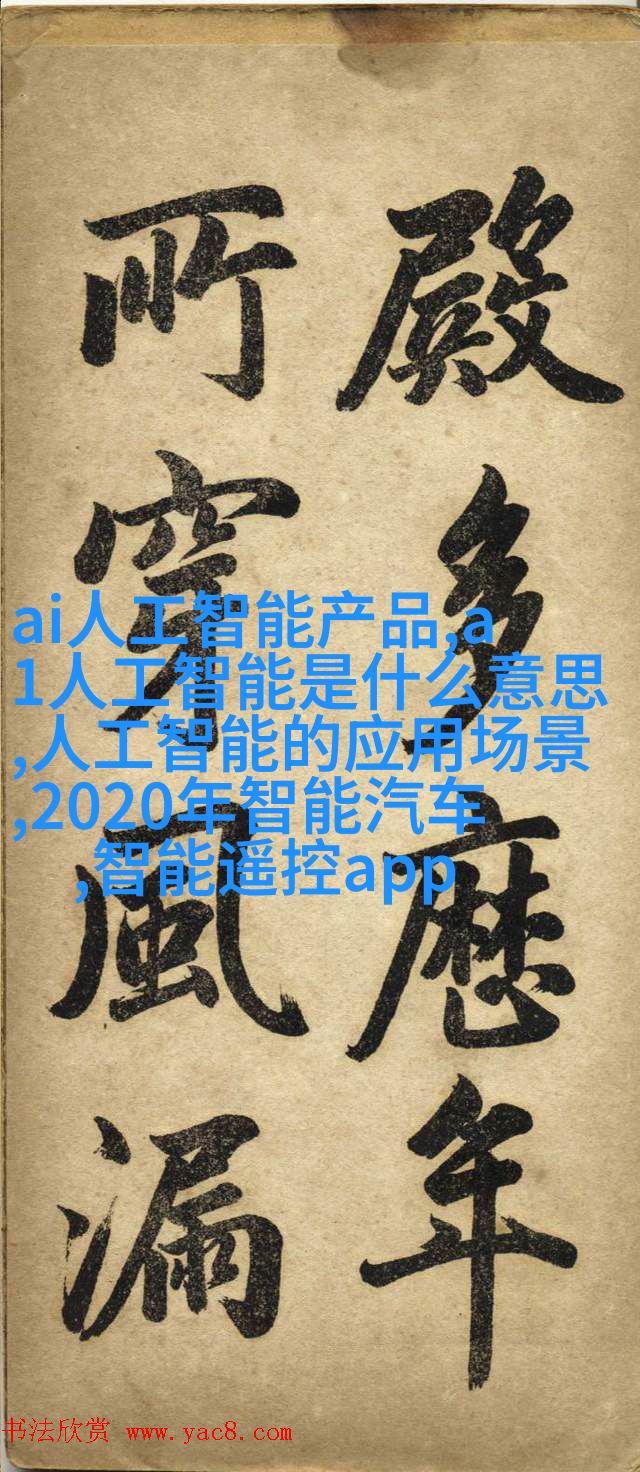 殿多歷年
所穿風漏
ai人工智能产品,a
1人工智能是什么意思
,人工智能的应用场景
,2020年智能汽车
,智能遥控app
书法欣赏 www.yac8.com